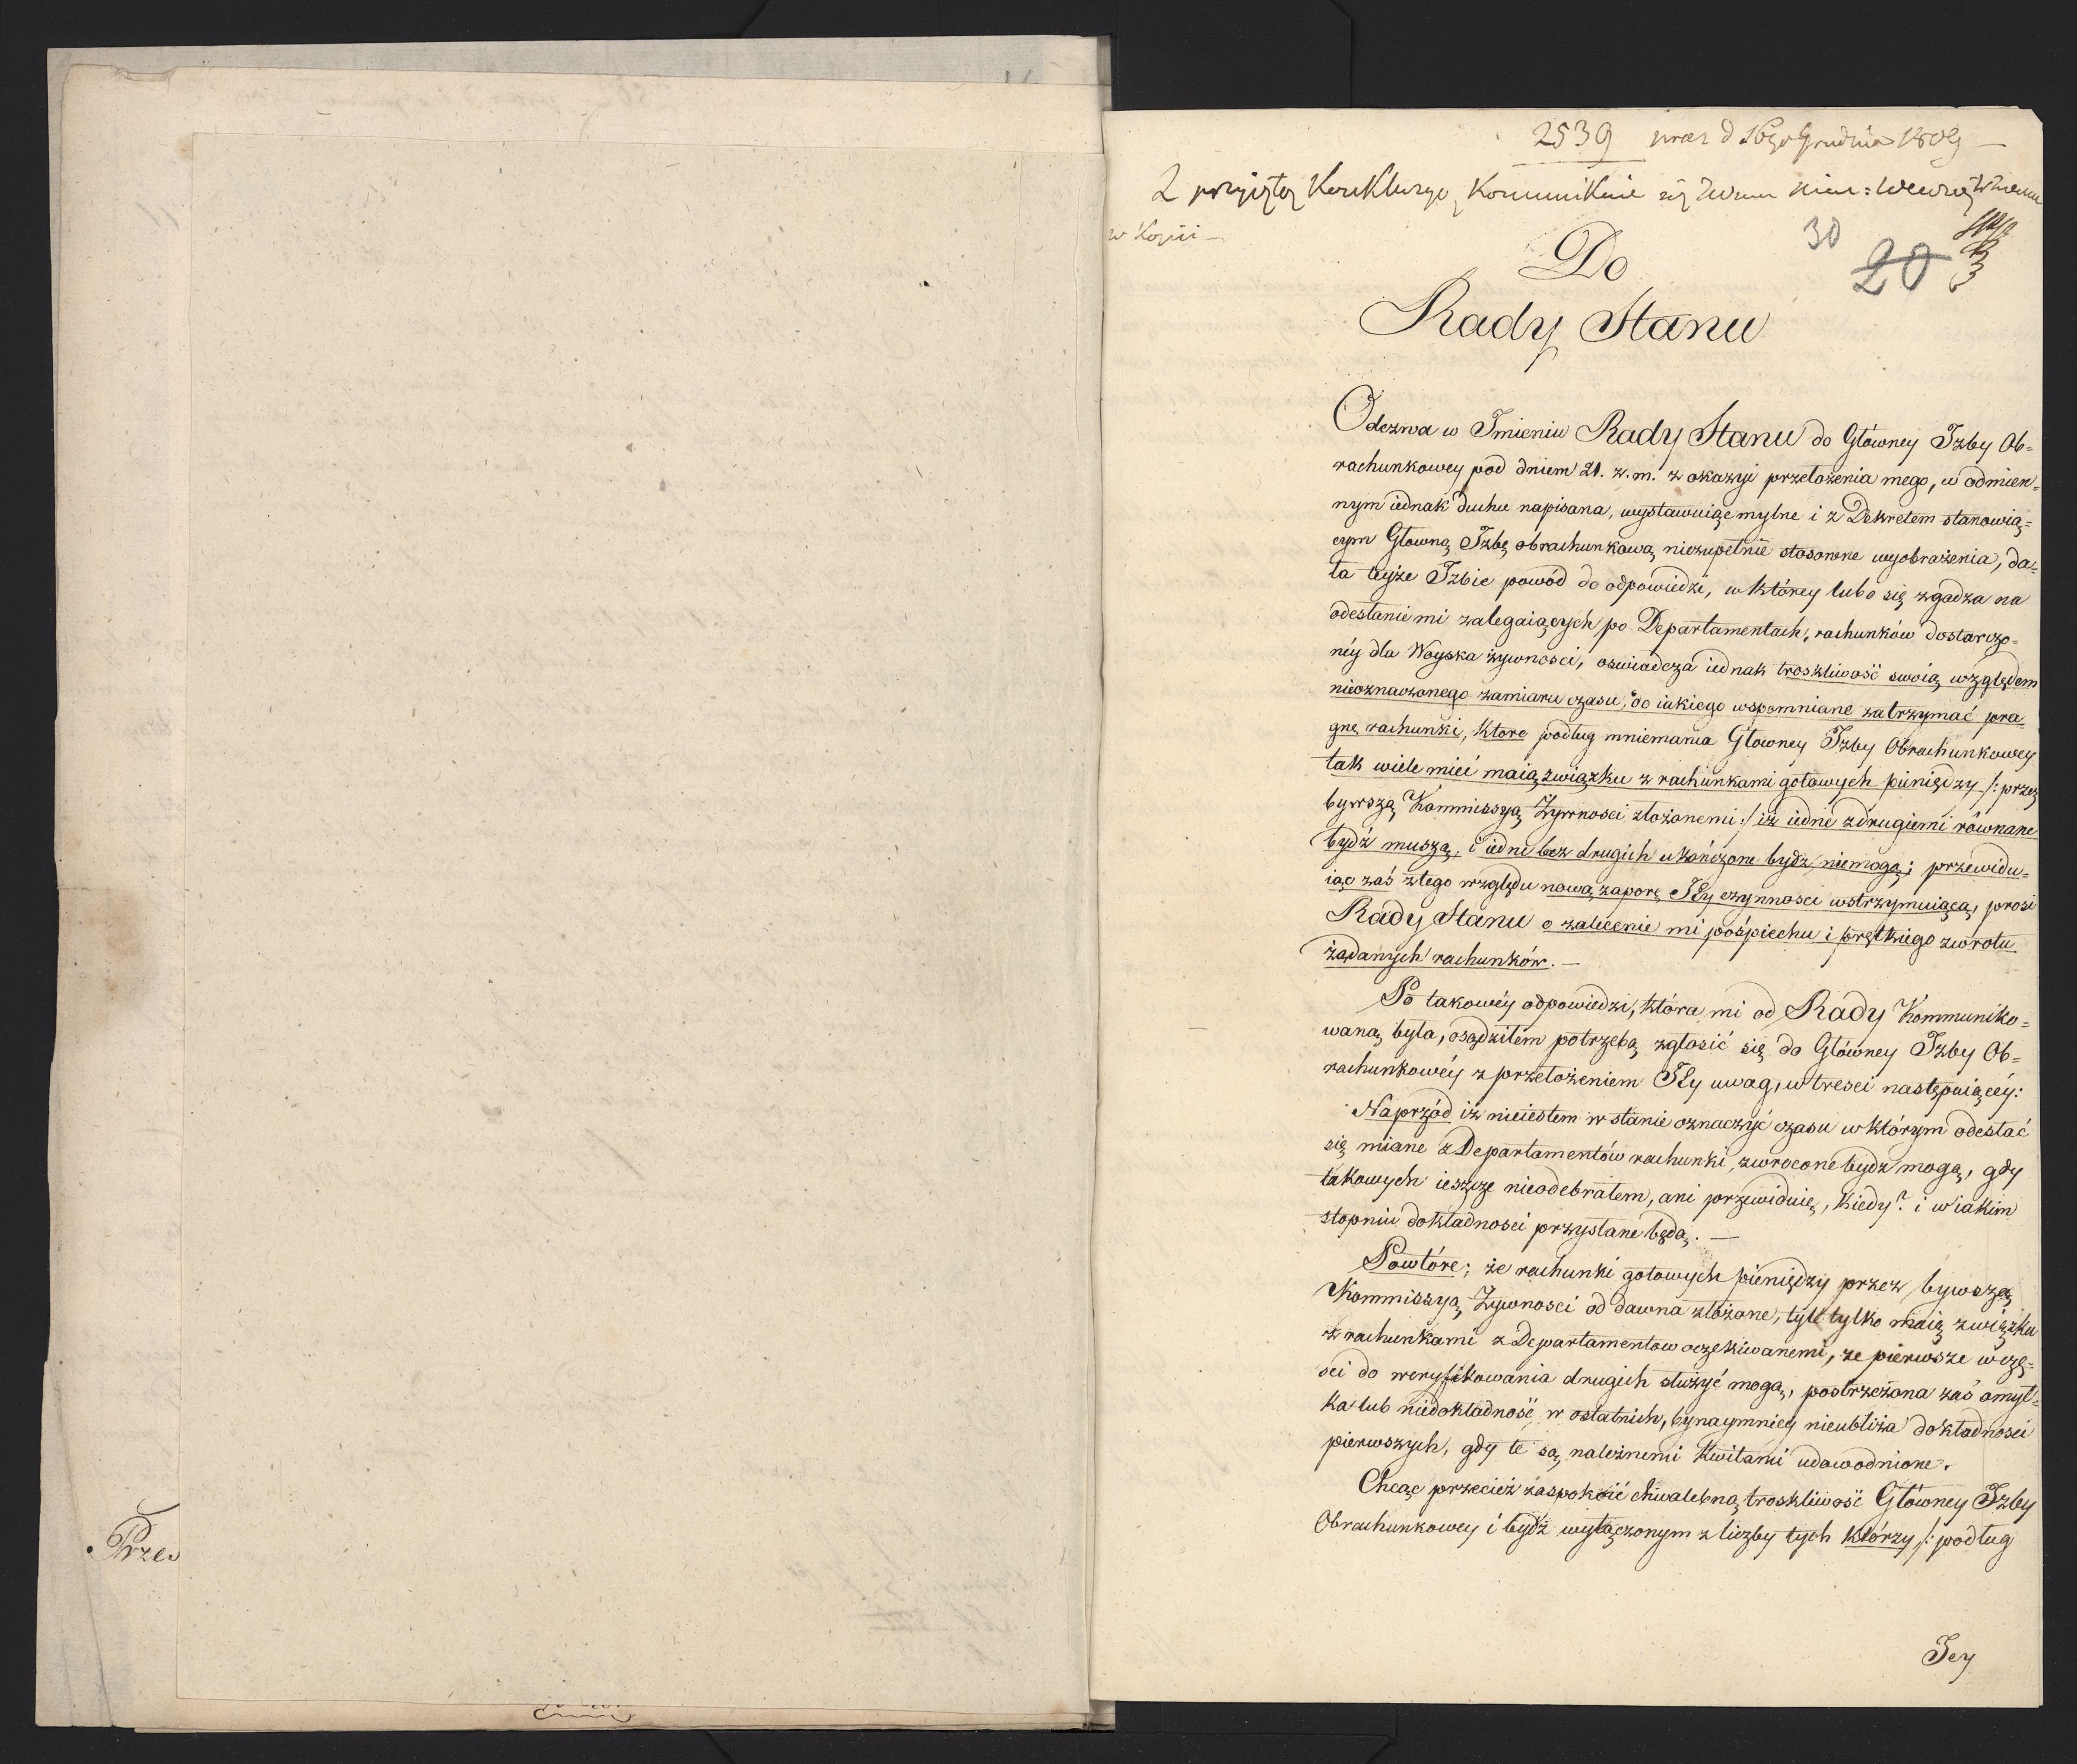 2539 prez d 16go Grudnia 1809 —
Z przyiętey Konkluzyi Kommunikuie się
w Kopii —
30
20
Do
Rady Stanu
Odezwa w Imieniu Rady Stanu do Główney Izby Ob=
rachunkowey pod dniem 21. z. m. z okazyi przełożenia mego, w odmien=
nym iednak duchu napisana, wystawuiąc mylne i z Dekretem stanowią=
cym Głowną Izbę obrachunkową niezupełnie stosowne wyobrażenia, da=
ła teyże Izbie powód do odpowiedzi, w którey lubo się zgadza na
odesłanie mi zalegaiących po Departamentach, rachunków dostarczo=
néy dla Woyska żywnosci, oswiadcza iednak troskliwość swoią względem
nieoznaczonego zamiaru czasu, do iakiego wspomniane zatrzymać pra
gnę rachunki, które podług mniemania Głowney Izby Obrachunkowey
tak wiele mieć maią związku z rachunkami gotowych pieniędzy /: przez
bywszą Kommissyą Żywnosci złożonemi :/ iż iedne z drugiemi równane
bydź muszą, i iedne bez drugich ukończone bydz niemogą; przewidu=
iąc zaś z tego względu nową zaporę Jéy czynnosci wstrzymuiącą, prosi
Rady Stanu o zalecenie mi pośpiechu i prętkiego zwrotu
żądanych rachunków. —
Po takowéy odpowiedzi, która mi od Rady Kommuniko=
waną była, osądziłem potrzebą zgłosić się do Główney Izby Ob=
rachunkowéy z przełożeniem Jéy uwag, w tresci następuiącéy:
Naprzód iż nieiestem w stanie oznaczyć czasu w którym odesłać
się miane z Departamentów rachunki, zwrocone bydz mogą, gdy
takowych ieszcze nieodebrałem, ani przewiduię, kiedy? i w iakim
stopniu dokładnosci przysłane będą. —
Powtóre; że rachunki gotowych pieniędzy przez bywszą
Kommissyą Żywnosci od dawna złożone, tyle tylko maią związku
z rachunkami z Departamentow oczekiwanemi, że pierwsze w czę=
sci do weryfikowania drugich służyć mogą, postrzeżona zaś omył=
ka lub niedokładność w ostatnich, bynaymniey nieubliża dokładnosci
pierwszych, gdy te są należnemi Kwitami udowodnione.
Chcąc przecież zaspokoić chwalebną troskliwość Główney Izby
Obrachunkowey i bydź wyłączonym z liczby tych którzy /: podług
Jey
Przes